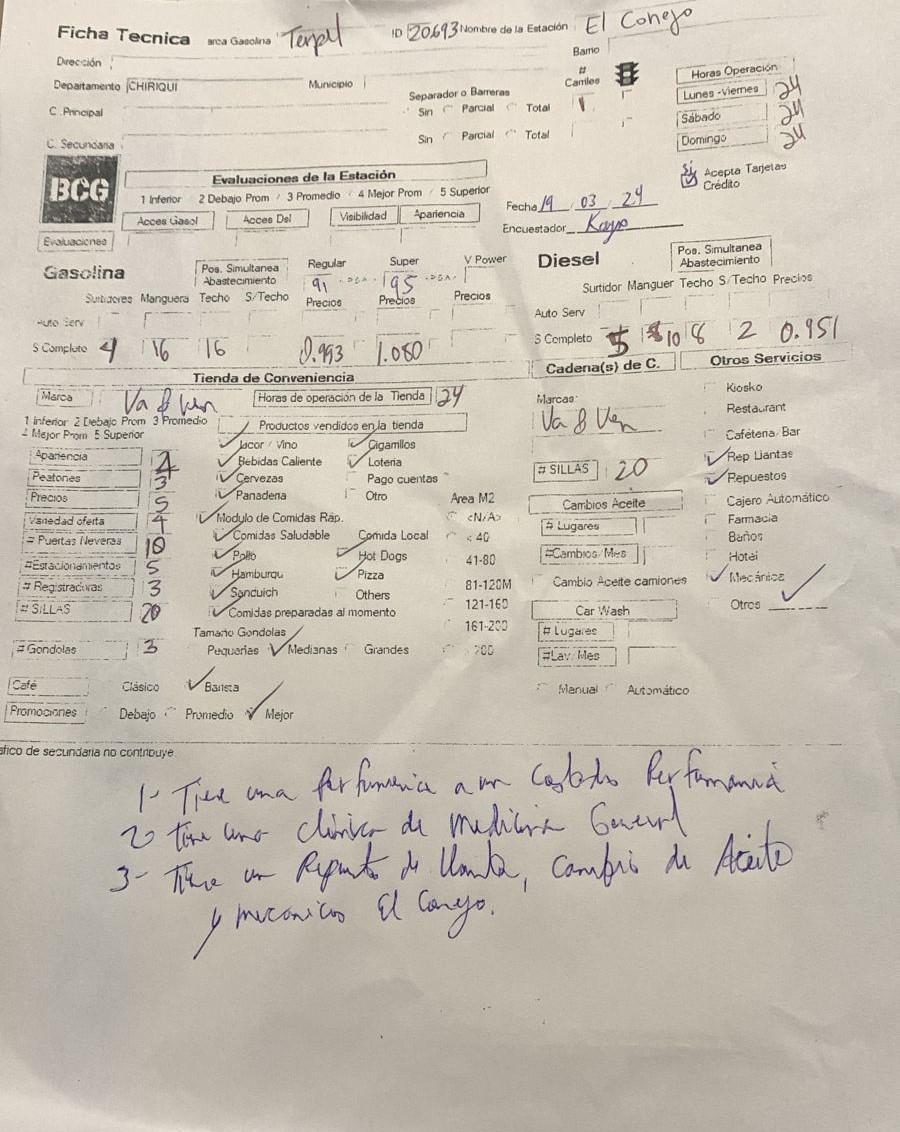 Ficha Tecnica arca Gasolina Terpel ID 20693 Nombre de la Estación El Conejo
Dirección Barrio
Departamento CHIRIQUI Municipio # Carriles Horas Operación
Separador o Barreras Lunes -Viernes 24
C. Principal Sin Parcial Total 1 Sábado 24
C. Secundaria Sin Parcial Total Domingo 24
BCG Evaluaciones de la Estación Si Acepta Tarjetas Crédito
1 Inferior 2 Debajo Prom 3 Promedio 4 Mejor Prom 5 Superior
Acces Gasol Acces Del Visibilidad Apariencia Fecha 19 / 03 / 24
Evaluaciones Encuestador
Gasolina Pos. Simultanea Abastecimiento Regular 91 Super 95 V Power Diesel Pos. Simultanea Abastecimiento
Surtidores Manguera Techo S/Techo Precios Precios Precios Surtidor Manguer Techo S/Techo Precios
Auto Serv Auto Serv
S Completo 4 16 16 0.993 1.080 S Completo 10 8 2 0.951
Tienda de Conveniencia Cadena(s) de C. Otros Servicios
Marca Va & Ven Horas de operación de la Tienda 24 Marcas: Kiosko
1 Inferior 2 Debajo Prom 3 Promedio Productos vendidos en la tienda Va & Ven Restaurant
4 Mejor Prom 5 Superior Licor / Vino Cigarrillos Cafétena/Bar
Apariencia 4 Bebidas Caliente Loteria # SILLAS 20 Rep Llantas
Peatones 3 Cervezas Pago cuentas Repuestos
Precios 5 Panaderia Otro Area M2 Cambios Aceite Cajero Automático
Variedad oferta 4 Modulo de Comidas Ráp. <N/A> # Lugares Farmacia
# Puertas Neveras 10 Comidas Saludable Comida Local < 40 Baños
#Estacionamientos 5 Pollo Hot Dogs 41-80 #Cambios/Mes Hotel
# Registradoras 3 Hamburgu Pizza 81-120M Cambio Aceite camiones Mecánica
# SILLAS 20 Sanduich Others 121-160 Car Wash Otros
Comidas preparadas al momento 161-200 # Lugares
Tamaño Gondolas
# Gondolas 3 Pequeñas Medianas Grandes > 200 #Lav/Mes
Café Clásico Barista Manual Automático
Promociones Debajo Promedio Mejor
áfico de secundaria no contribuye
1- Tiene una Perfumeria a un Costado
2) tiene una clinica de Medicina General
3- Tiene un Repuesto de llanta, cambio de Aceite
y mecanicos El Conejo.